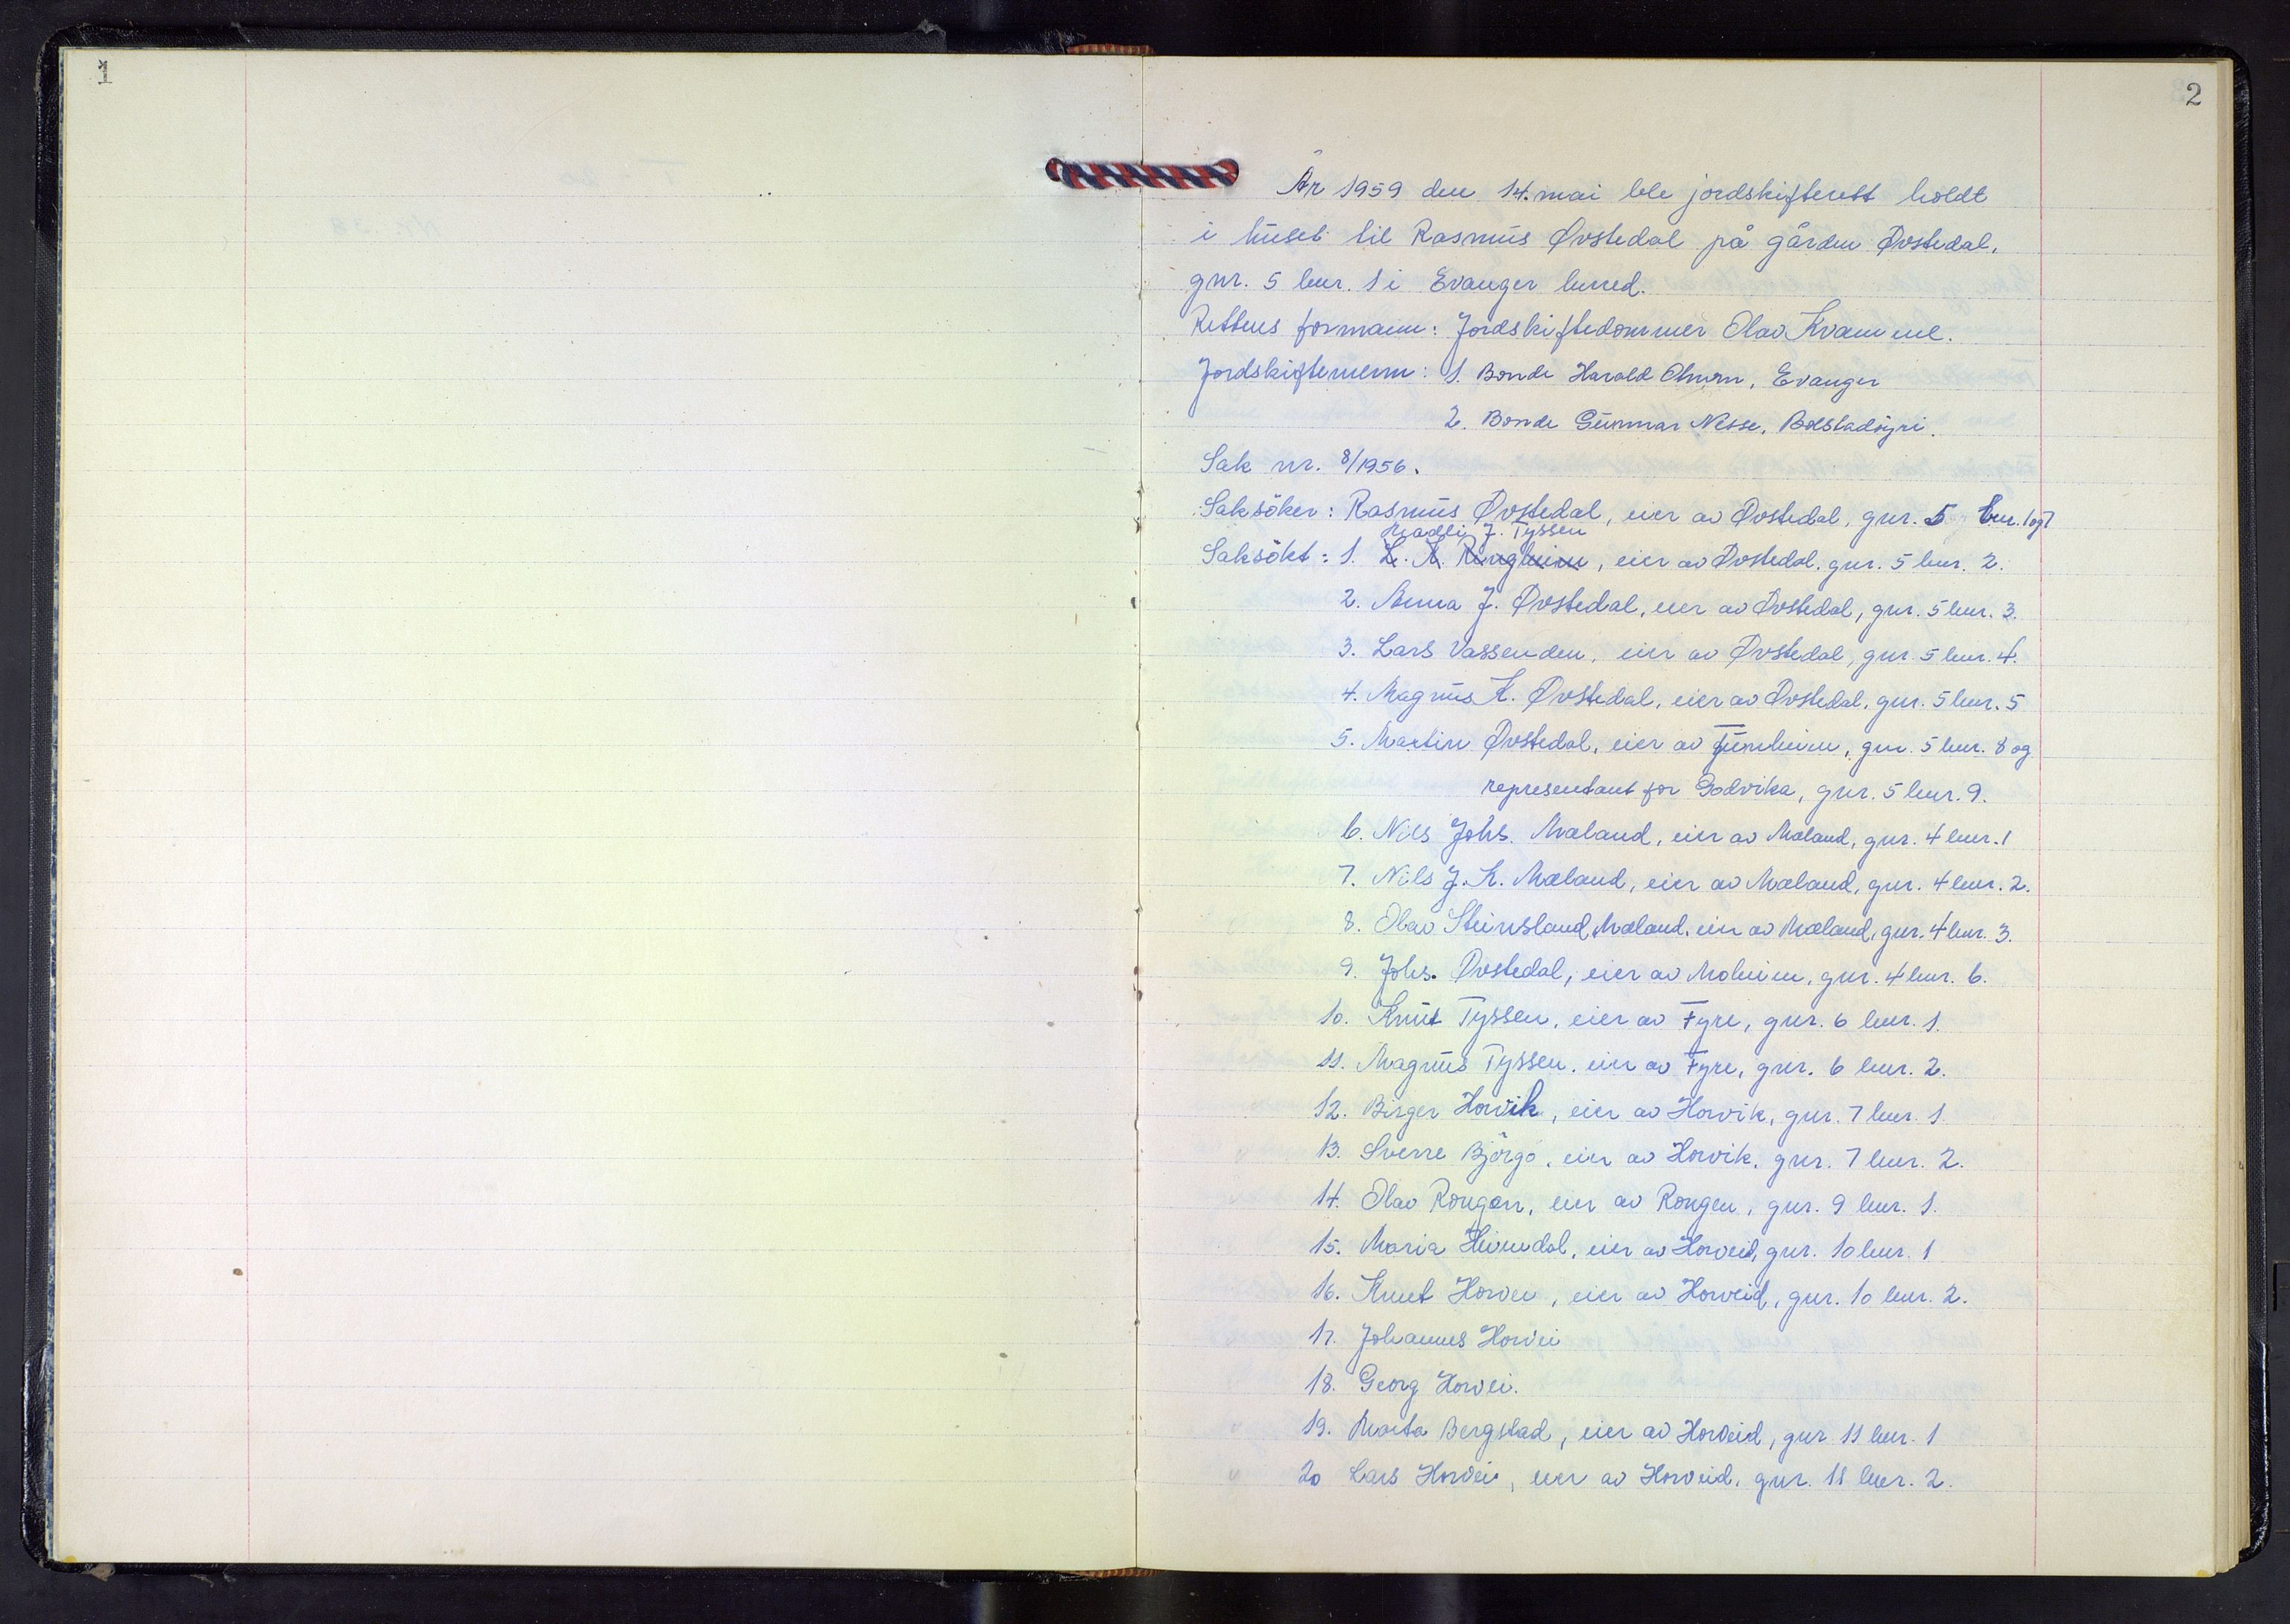 1
2
År 1959 den 14. mai ble jordskifterett holdt
i huset til Rasmus Øvstedal på gården Øvstedal,
gnr. 5 bnr. 1 i Evanger herred.
Rettens formann: Jordskiftedommer Olav Kvamme.
Jordskiftemenn: 1. Bonde Harald Evanger
2. Bonde Gunnar Nesse, Bolstadøyri.
Sak nr. 8/1956.
Saksöker: Rasmus Øvstedal, eier av Øvstedal, gnr. 5 bnr. 1 og 7
J. Tyssen
Saksökt: 1. L. N. Ringheim, eier av Øvstedal, gnr. 5 bnr. 2.
2. Anna J. Øvstedal, eier av Øvstedal, gnr. 5 bnr. 3.
3. Lars Vassenden, eier av Øvstedal, gnr. 5 bnr. 4.
4. Magnus K. Øvstedal, eier av Øvstedal, gnr. 5 bnr. 5
5. Martin Øvstedal, eier av Tunheim, gnr. 5 bnr. 8 og
representant for Godvika, gnr. 5 bnr. 9.
6. Nils Johs. Mæland, eier av Mæland, gnr. 4 bnr. 1
7. Nils J. K. Mæland, eier av Mæland, gnr. 4 bnr. 2.
8. Olav Steinsland Mæland, eier av Mæland, gnr. 4 bnr. 3.
9. Johs. Øvstedal, eier av Moheim, gnr. 4 bnr. 6.
10. Knut Tyssen, eier av Fyre, gnr. 6 bnr. 1.
11. Magnus Tyssen, eier av Fyre, gnr. 6 bnr. 2.
12. Birger Horvik, eier av Horvik, gnr. 7 bnr. 1
13. Sverre Björgo, eier av Horvik, gnr. 7 bnr. 2.
14. Olav Rongen, eier av Rongen, gnr. 9 bnr. 1.
15. Maria Heimdal, eier av Horveid, gnr. 10 bnr. 1
16. Knut Horvei, eier av Horveid, gnr. 10 bnr. 2.
17. Johannes Horvei
18. Georg Horvei.
19. Marta Bergstad, eier av Horveid, gnr 11 bnr. 1
20 Lars Horvei, eier av Horveid, gnr. 11 bnr. 2.